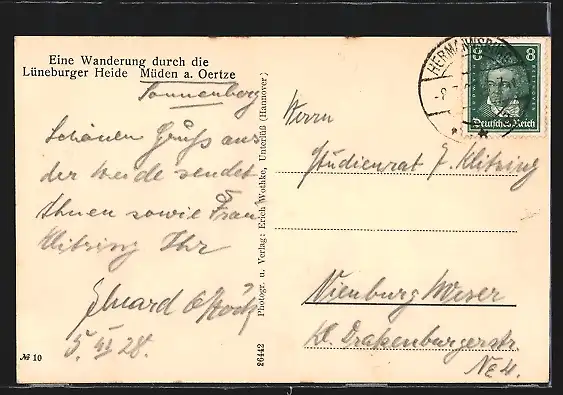 Eine Wanderung durch die
Lüneburger Heide Müden a. Oertze
Sonnenberg
Schönen Gruß aus
der Heide sendet
Ihnen sowie Frau
Klitzing Ihr
5. VI 28.
№ 10
Photogr. u. Verlag: Erich Wothke, Unterlüß (Hannover)
26442
HERMANNSBURG
8
Deutsches Reich
Herrn
Studienrat J. Klitzing
Nienburg Weser
Kl. Drakenburgerstr.
No 4.